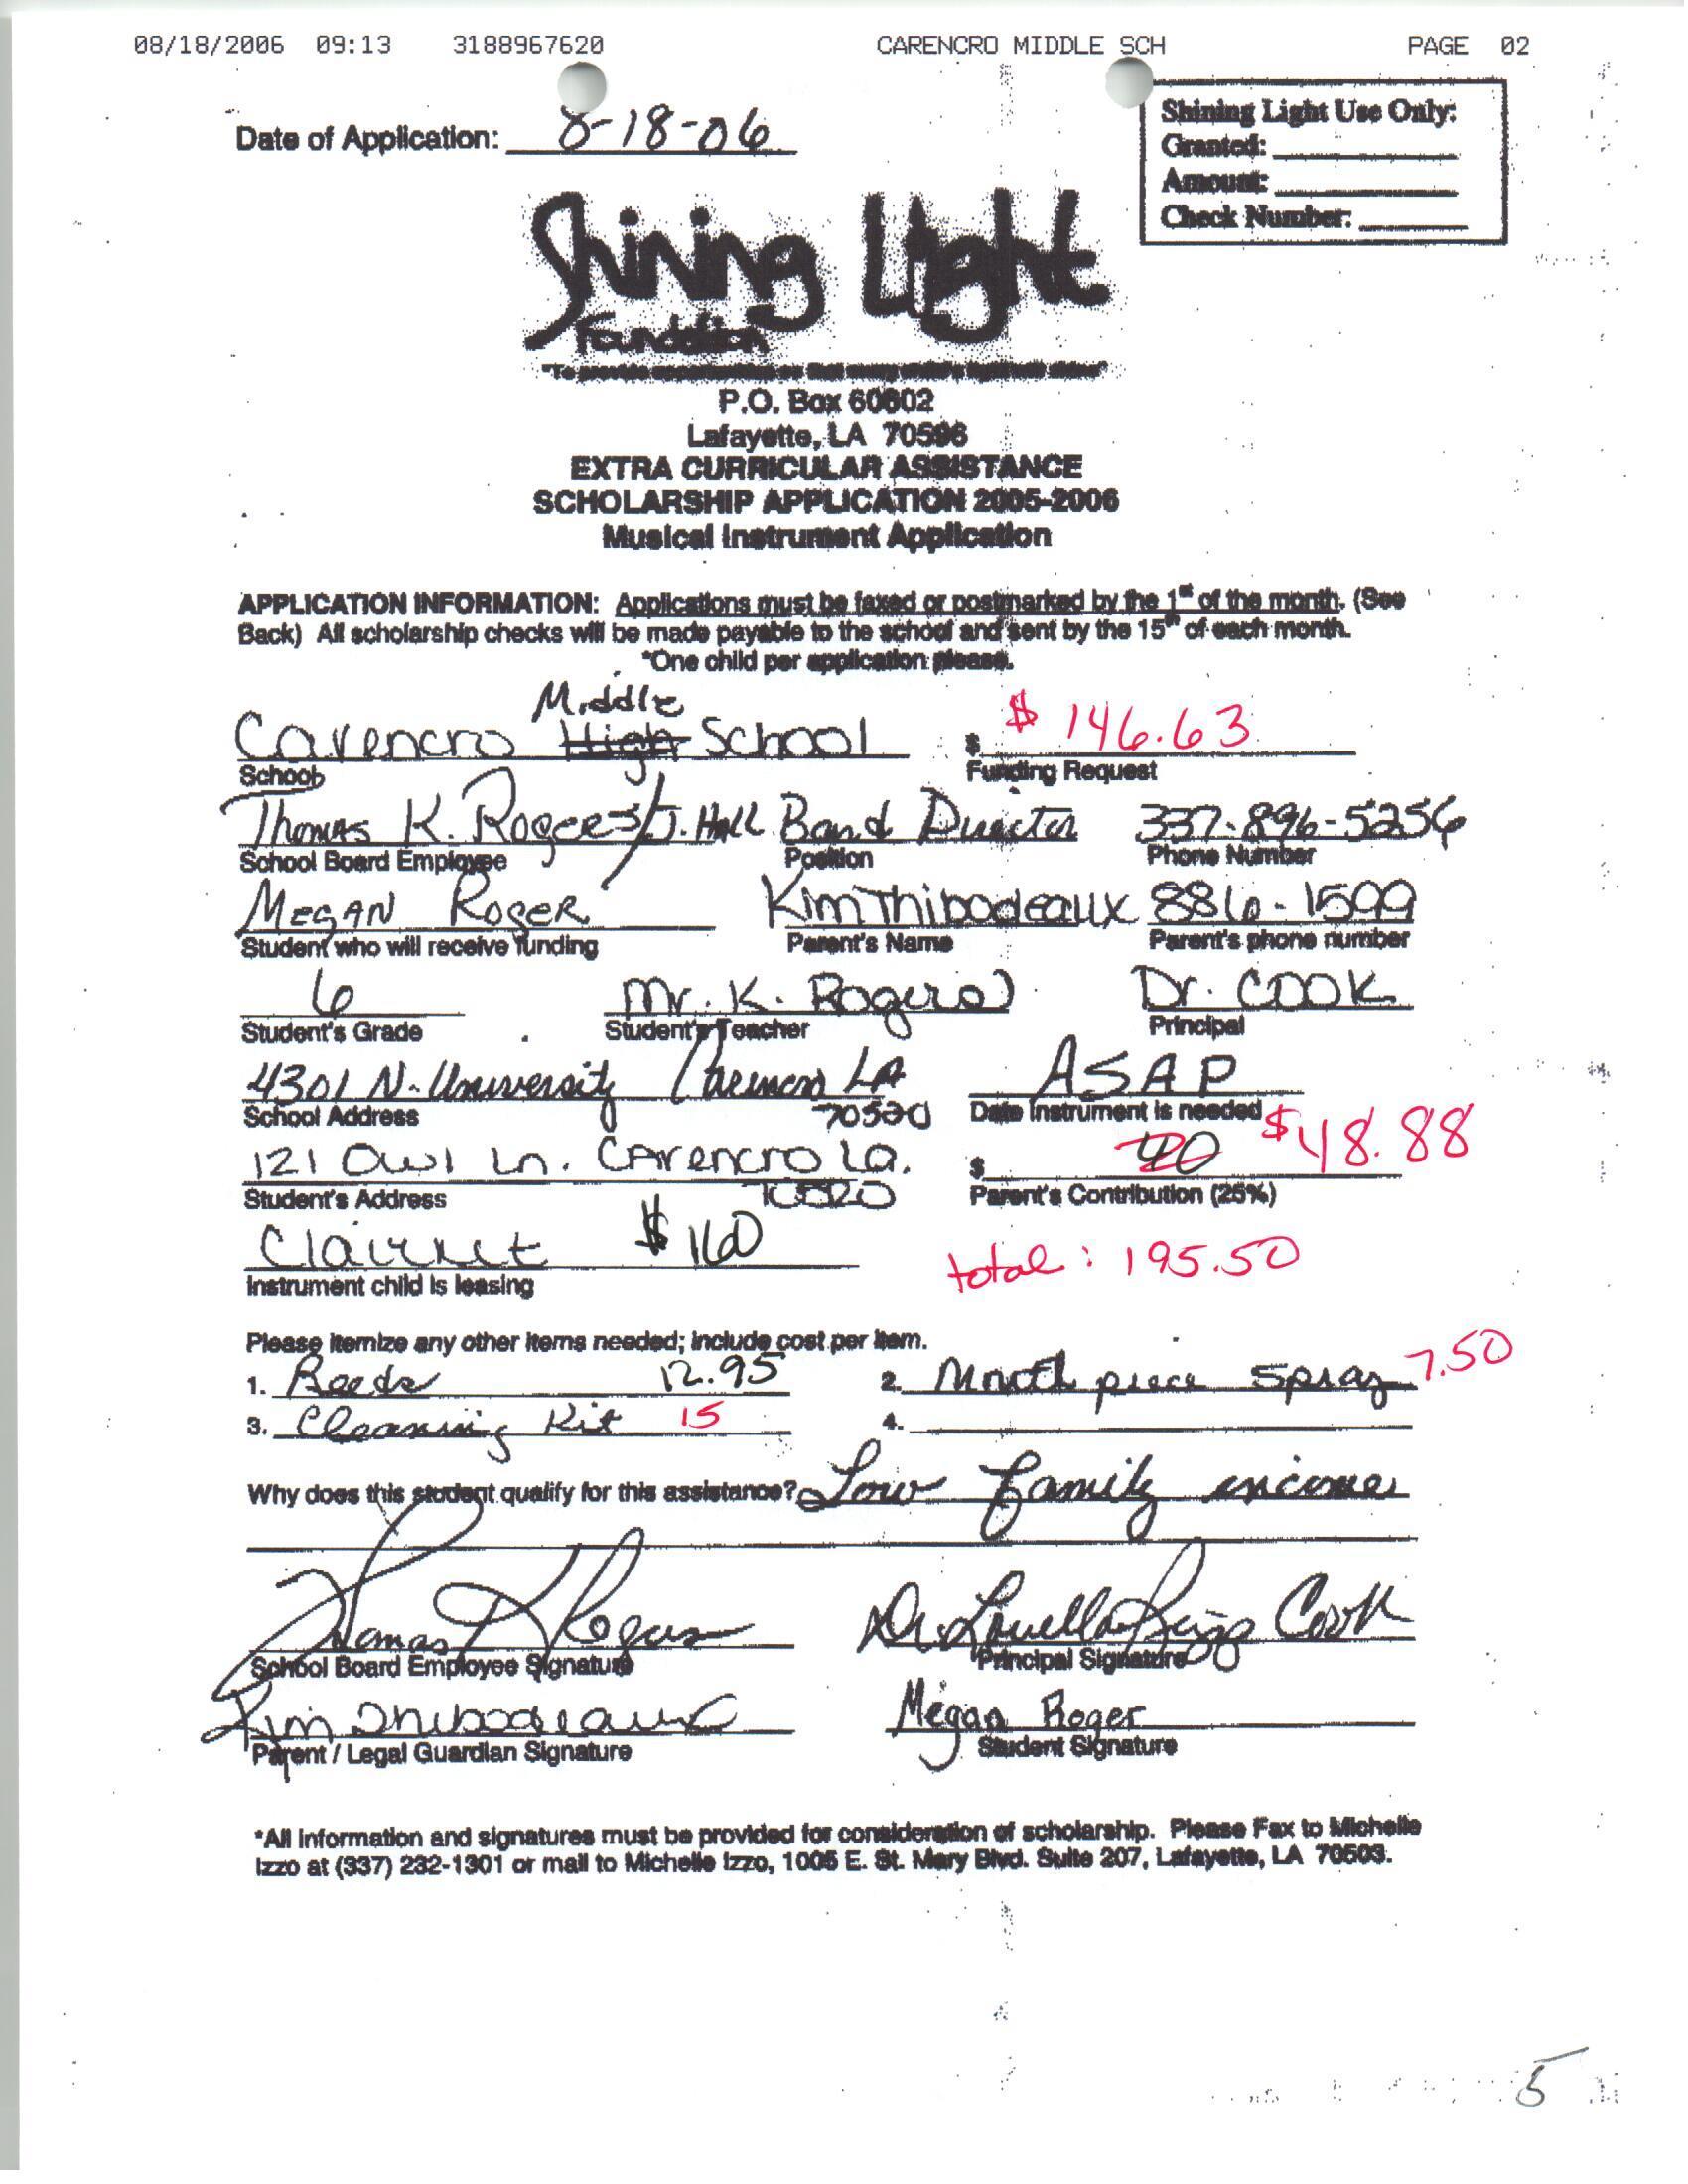 08/18/2006 09:13 3188967620 CARENCRO MIDDLE SCH PAGE 02
Date of Application: 8-18-06
Shining Light Use Only:
Granted:
Amount:
Check Number:
Shining Light
Foundation
"To provide opportunities so that every child's light will shine"
P.O. Box 60602
Lafayette, LA 70596
EXTRA CURRICULAR ASSISTANCE
SCHOLARSHIP APPLICATION 2005-2006
Musical Instrument Application
APPLICATION INFORMATION: Applications must be faxed or postmarked by the 1st of the month. (See
Back) All scholarship checks will be made payable to the school and sent by the 15th of each month.
*One child per application please.
Middle
Carencro High School $ $ 146.63
School Funding Request
Thomas K. Rogers/J. Hall Band Director 337-896-5256
School Board Employee Position Phone Number
MEGAN ROGER Kim Thibodeaux 886-1599
Student who will receive funding Parent's Name Parent's phone number
6 Mr. K. Rogers Dr. COOK
Student's Grade Student's Teacher Principal
4301 N. University Carencro LA ASAP
School Address 70520 Date instrument is needed
121 Owl Ln. CArencro La. $ 40 $48.88
Student's Address 70520 Parent's Contribution (25%)
Clarinet $ 160 total: 195.50
Instrument child is leasing
Please itemize any other items needed; include cost per item.
1. Reeds 12.95 2. Mouth piece Spray 7.50
3. Cleaning Kit 15 4.
Why does this student qualify for this assistance? Low family income
Thomas K Rogers Dr. Louella Cook
School Board Employee Signature Principal Signature
Kim Thibodeaux Megan Roger
Parent / Legal Guardian Signature Student Signature
*All information and signatures must be provided for consideration of scholarship. Please Fax to Michelle
Izzo at (337) 232-1301 or mail to Michelle Izzo, 1005 E. St. Mary Blvd. Suite 207, Lafayette, LA 70503.
5